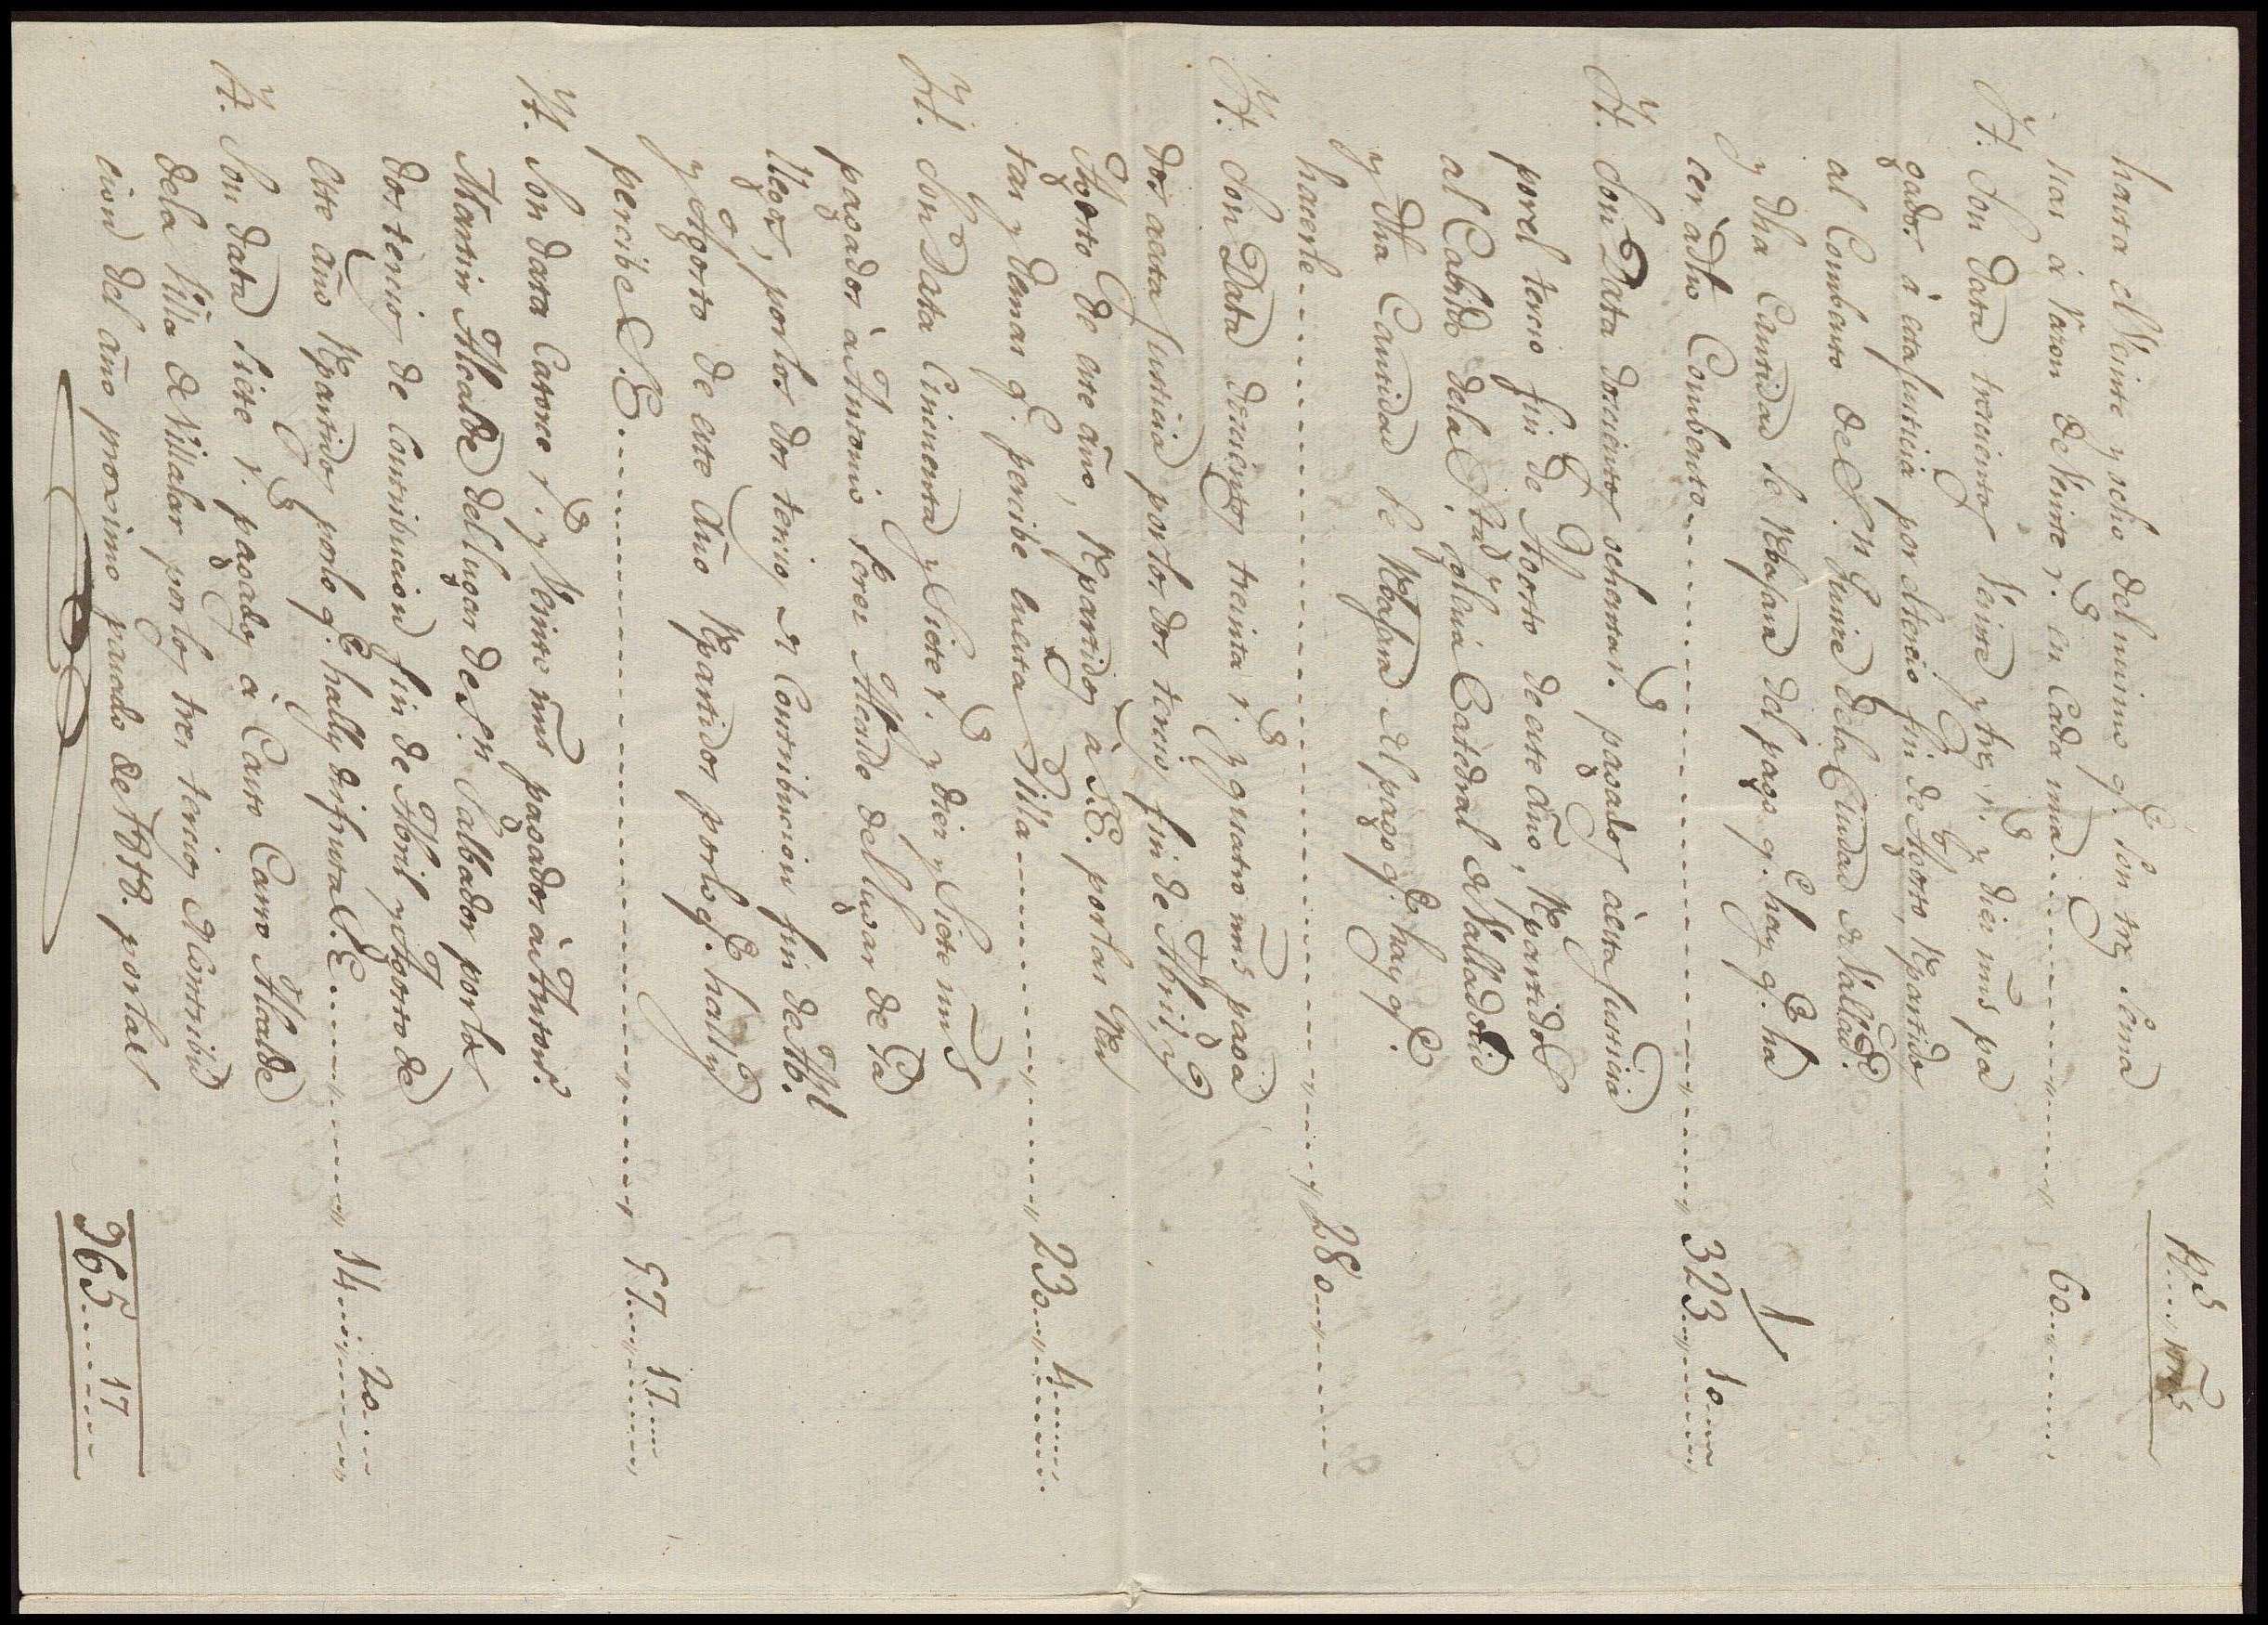 Rs mrs
hasta el Veinte y ocho del mismo qe son tres sema
nas à razon de Veinte rs en cada una 60
Yt. Son data trescientos Veinte y tres rs y diez mrs pa
gados à esta Justicia por el tercio fin de Agosto, repartidos
al Combento de Sn Quirce dela Ciudad de Vallad.
y dha Cantidad se rebajara del pago qe hay qe ha
cer a dho Combento 323 10
Yt. Son Data doscientos ochenta rs pagados à esta Justicia
por el tercio fin de Agosto de este año, repartidos
al Cabildo dela Sta Yglesia Catedral de Valladolid
y dha Cantidad se rebajara del pago qe hay qe
hacerle 280
Yt. Son Data doscientos treinta rs y quatro mrs paga
dos a esta Justicia por los dos tercios fin de Abril, y
Agosto de este año, repartidos à S.E. por las Ren
tas y demas qe percibe en esta Villa 230 4
Yt. Son Data Cincuenta y Siete rs y diez y Siete mrs
pagados à Antonio Perez Alcalde del lugar de Ga
llegos, por los dos tercios de Contribucion fin de Abl
y Agosto de este año repartidos por lo qe hally
percibe S.E. 57 17
Yt. Son data Catorce rs y Veinte mrs pagados à Antoni.
Martin Alcalde del lugar de Sn Salbador por los
dos tercios de Contribucion fin de Abril y Agosto de
este año repartidos por lo qe hally disfruta S.E. 14 20
Yt. Son data Siete rs pagados à Casto Carro Alcalde
dela Villa de Villalar por los tres tercios de Contribu
cion del año proximo pasado de 1818. por las
965 17